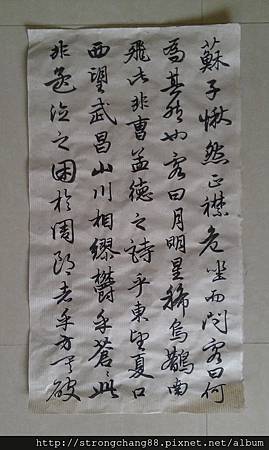 蘇子愀然正襟危坐而問客曰何
爲其然也客曰月明星稀烏鵲南
飛此非曹孟德之詩乎東望夏口
西望武昌山川相繆鬱乎蒼〻此
非孟德之困於周郎者乎方其破
http://strongchang88.pixnet.net/album